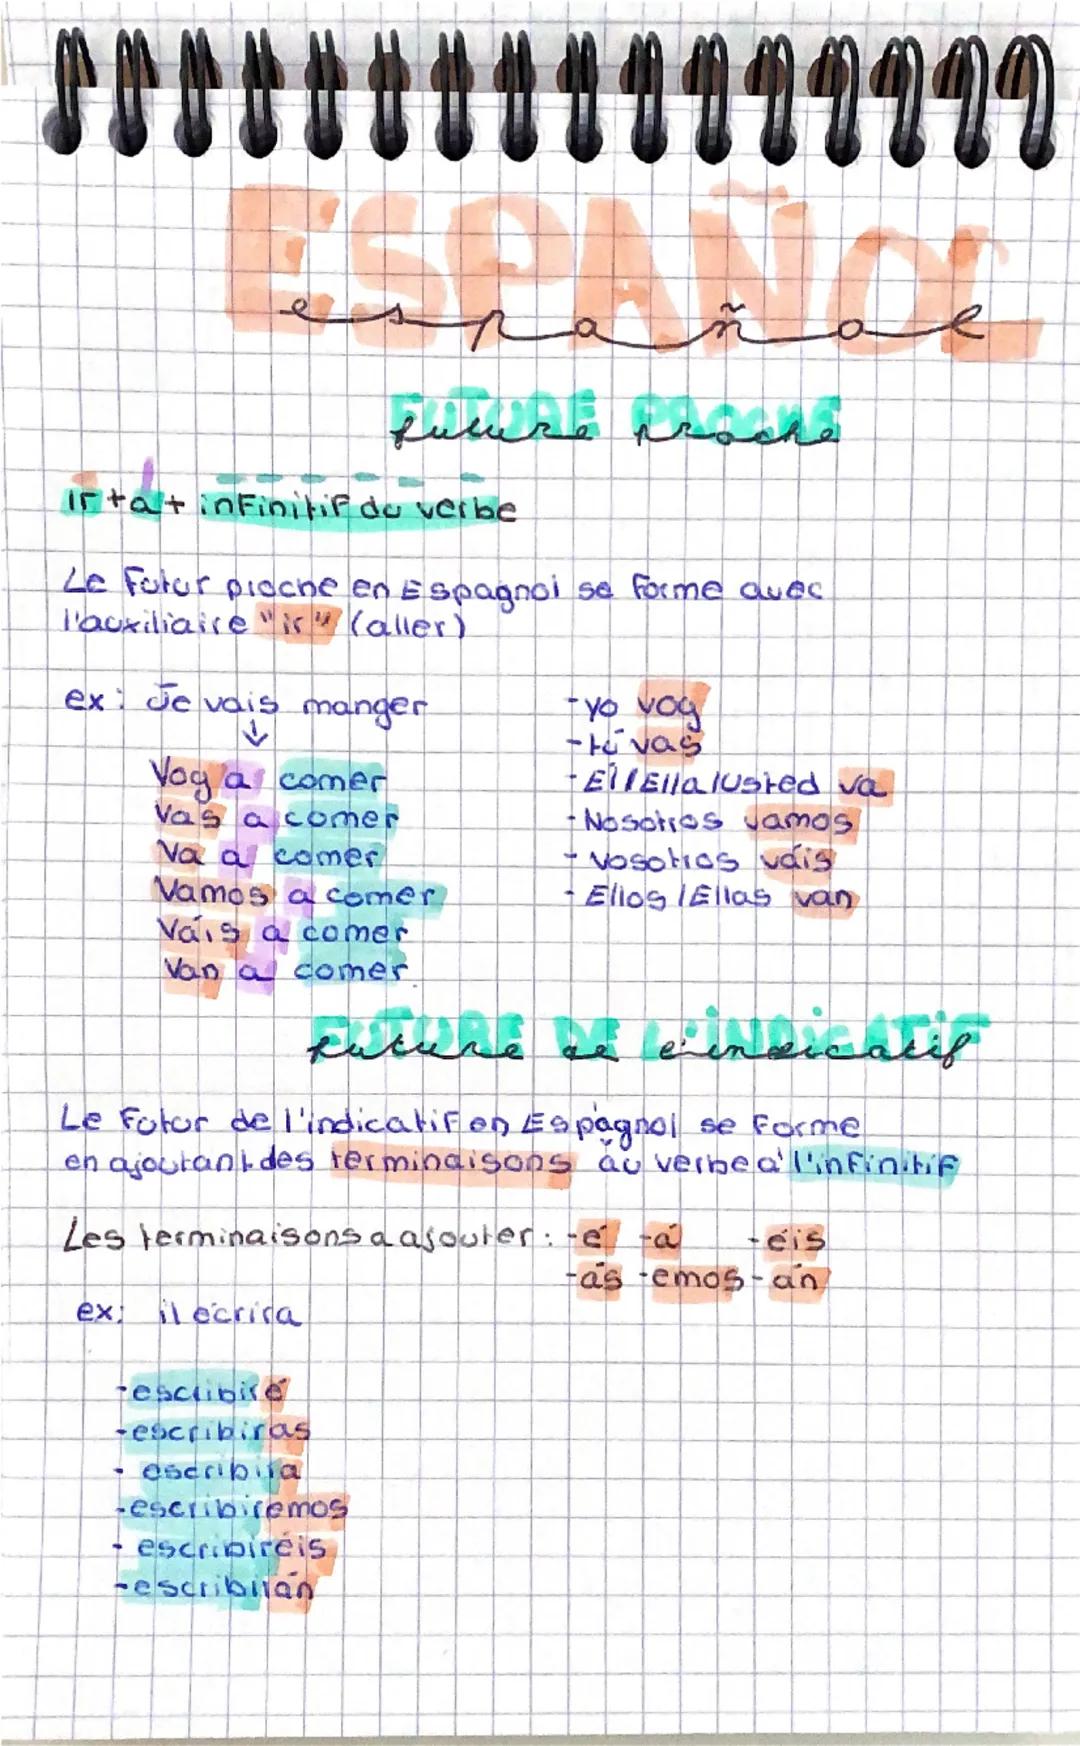 ESPAÑOL
español
FUTURE PROCHE
future proche
ir + a + infinitif du verbe
Le Futur proche en Espagnol se forme avec
l'auxiliaire "ir" (aller)
ex: Je vais manger
↓
Voy a comer
Vas a comer
Va a comer
Vamos a comer
Váis a comer
Van a comer
- yo voy
- tú vas
- El/Ella/Usted va
- Nosotros vamos
- Vosotros váis
- Ellos/Ellas van
FUTURE DE L'INDICATIF
future de l'indicatif
Le Futur de l'indicatif en Espagnol se forme
en ajoutant des terminaisons au verbe à l'infinitif
Les terminaisons a ajouter: -é -á -éis
-ás -emos -án
ex: il écrira
- escribiré
- escribiras
- escribira
- escribiremos
- escribiréis
- escribirán